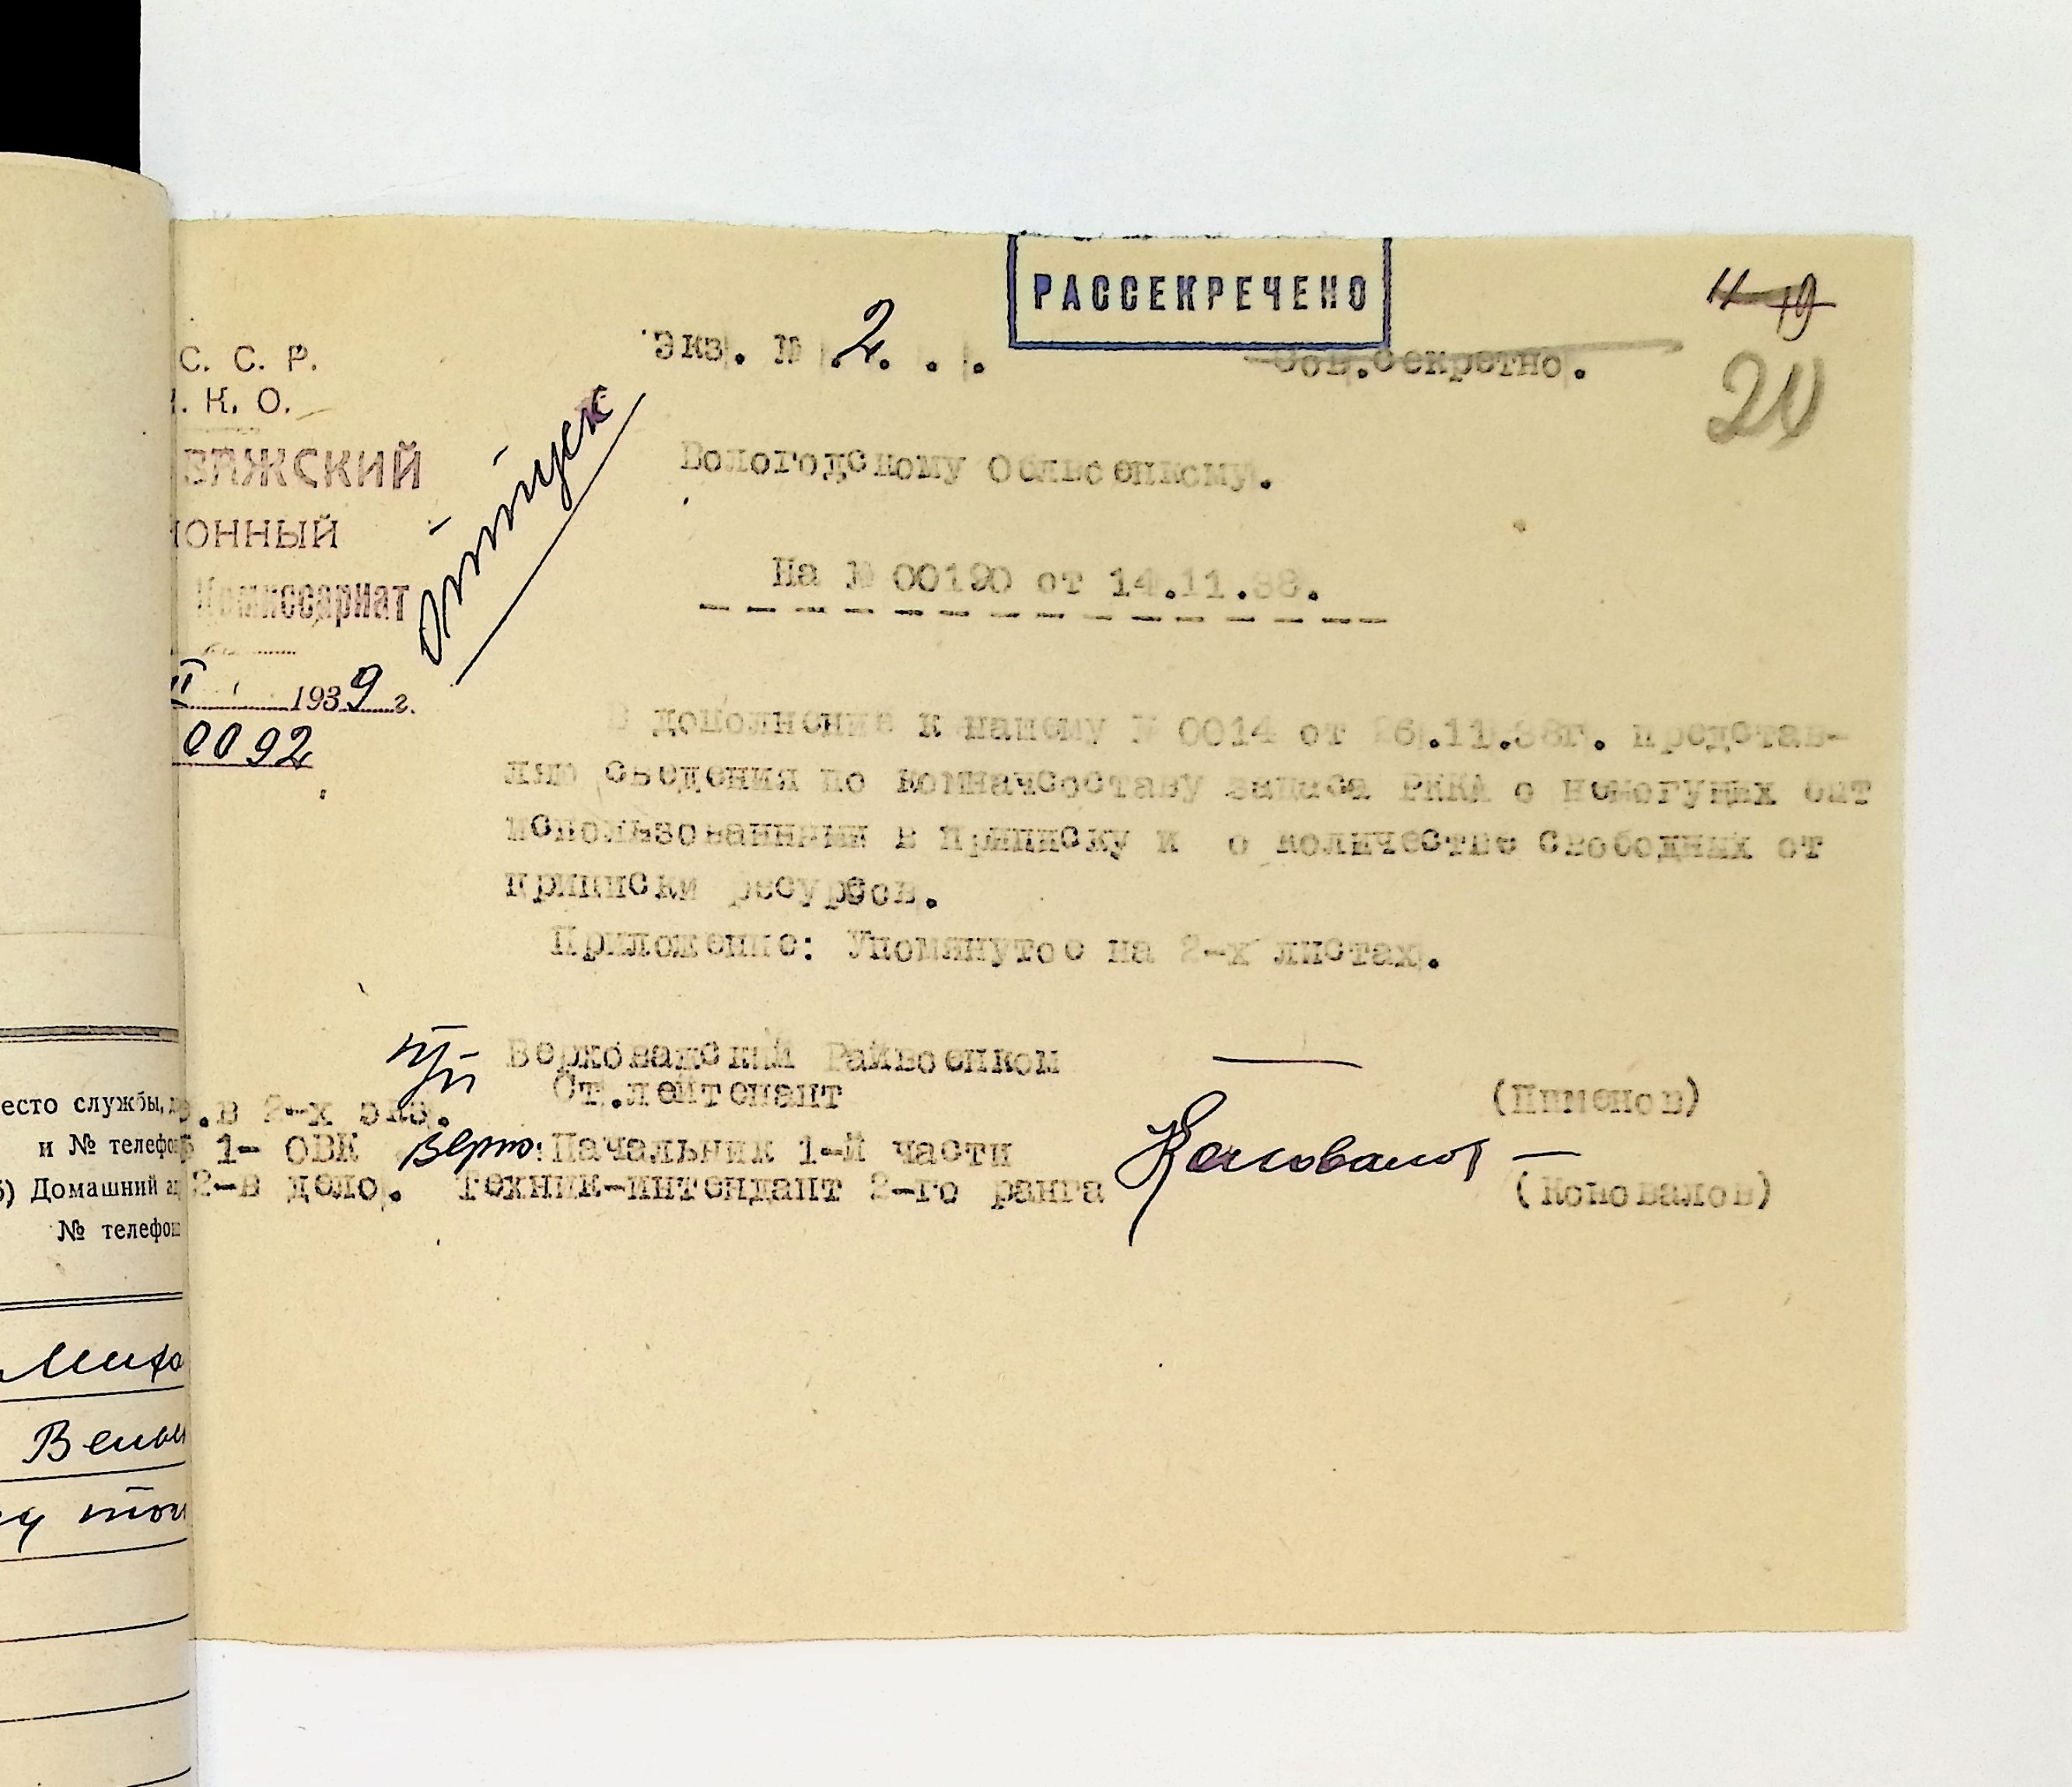 РАССЕКРЕЧЕНО
экз. № 2. . .
Сов.секретно.
20
С. С. Р.
Н. К. О.
ВАЖСКИЙ
ИОННЫЙ
Комиссариат
II 1939 г.
0092
отпуск
Вологодскому Облвоенкому.
На № 00190 от 14.11.38.
В дополнение к нашему № 0014 от 26.11.38г. представ-
ляю сведения по комначсоставу запаса РККА о немогущих быт
использованными в приписку и о количестве свободных от
приписки ресурсов.
Приложение: Упомянутое на 2-х листах.
Верховажский Райвоенком
Ст.лейтенант
(Пименов)
.в 2-х экз.
1- ОВК
2-в дело.
Верно: Начальник 1-й части
Техник-интендант 2-го ранга
Коновалов
(Коновалов)
есто службы,
и № телефо
б) Домашний а
№ телефо